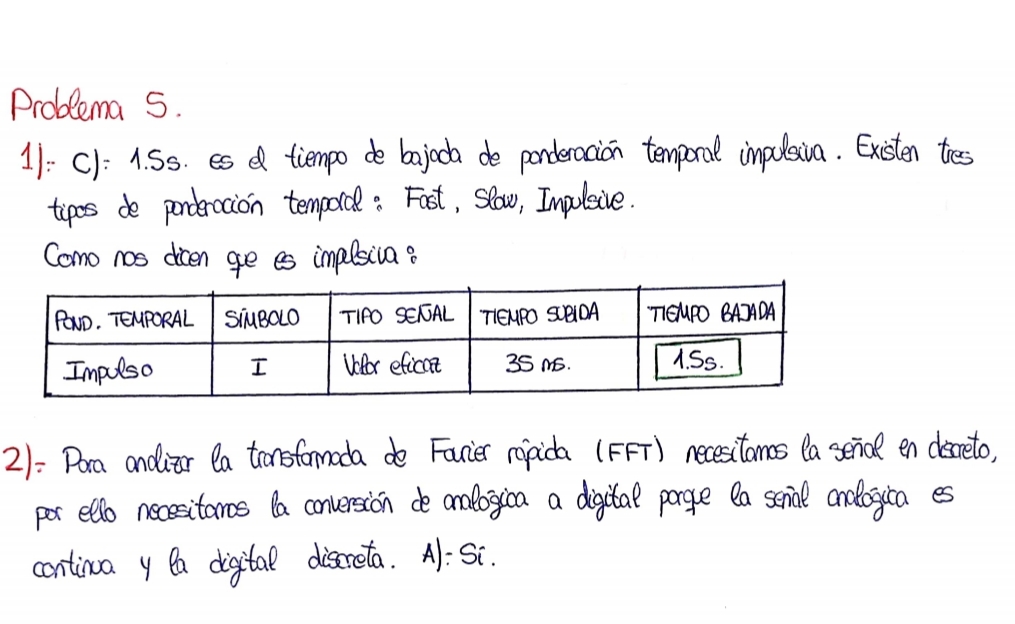 Problema 5.
1).- C).- 1.5s. es el tiempo de bajada de ponderación temporal impulsiva. Existen tres
tipos de ponderación temporal: Fast, Slow, Impulsive.
Como nos dicen qe es impulsiva:
POND. TEMPORAL SÍMBOLO TIPO SEÑAL TIEMPO SUBIDA TIEMPO BAJADA
Impulso I Valor eficaz 35 ms. 1.5s.
2).- Para analizar la transformada de Fourier rápida (FFT) necesitamos la señal en discreto,
por ello necesitamos la conversión de analógica a digital porqe la señal analógica es
continua y la digital discreta. A).- Sí.